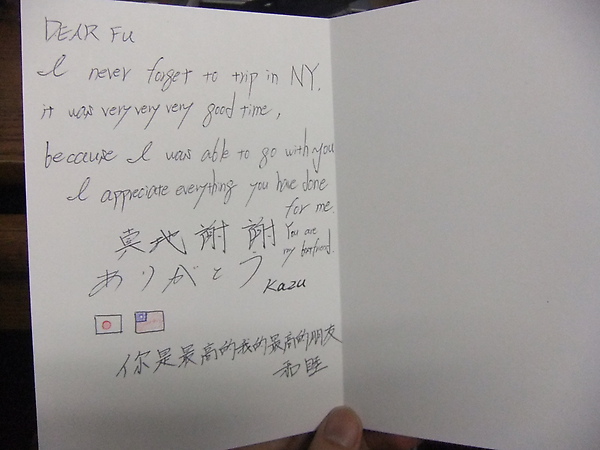 DEAR FU
I never forget to trip in NY.
it was very very very good time,
because I was able to go with you
I appreciate everything you have done
for me.
真地謝謝
You are
my bestfriend.
ありがとう
Kazu
你是最高的我的最高的朋友
和睦